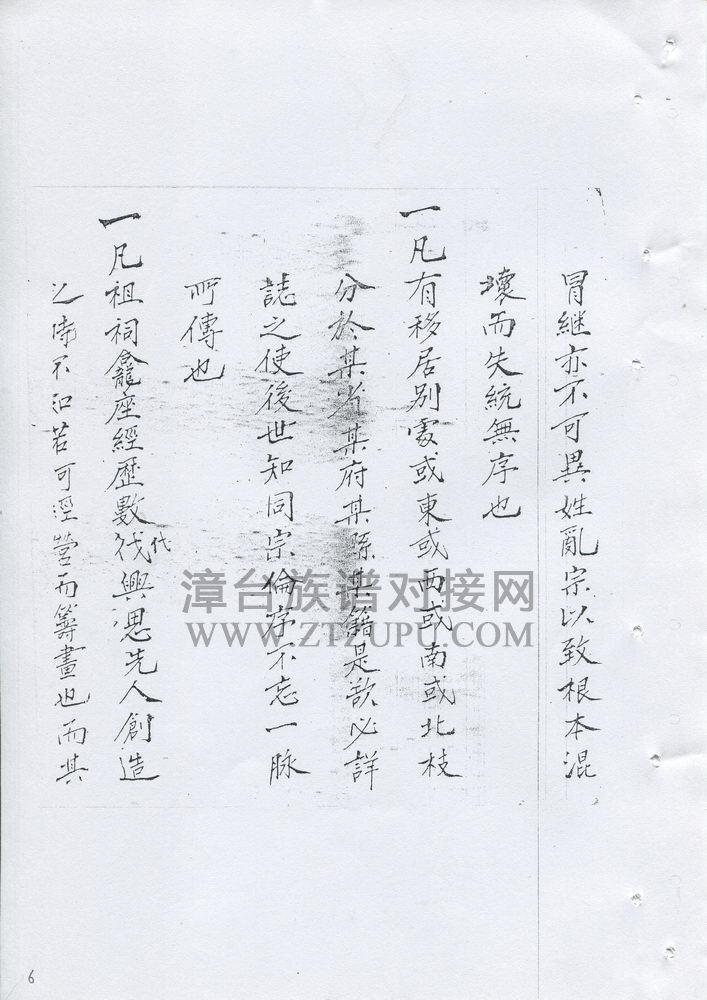 冒継亦不可異姓亂宗以致根本混
壞而失統無序也
一凡有移居別處或東或西或南或北枝
分於某省某府某縣某籍是欤必詳
誌之使後世知同宗倫序不忘一脉
所傳也
一凡祖祠龕座經歷數代興思先人創造
之時不知若可經營而籌畫也而其
漳台族谱对接网
WWW.ZTZUPU.COM
6